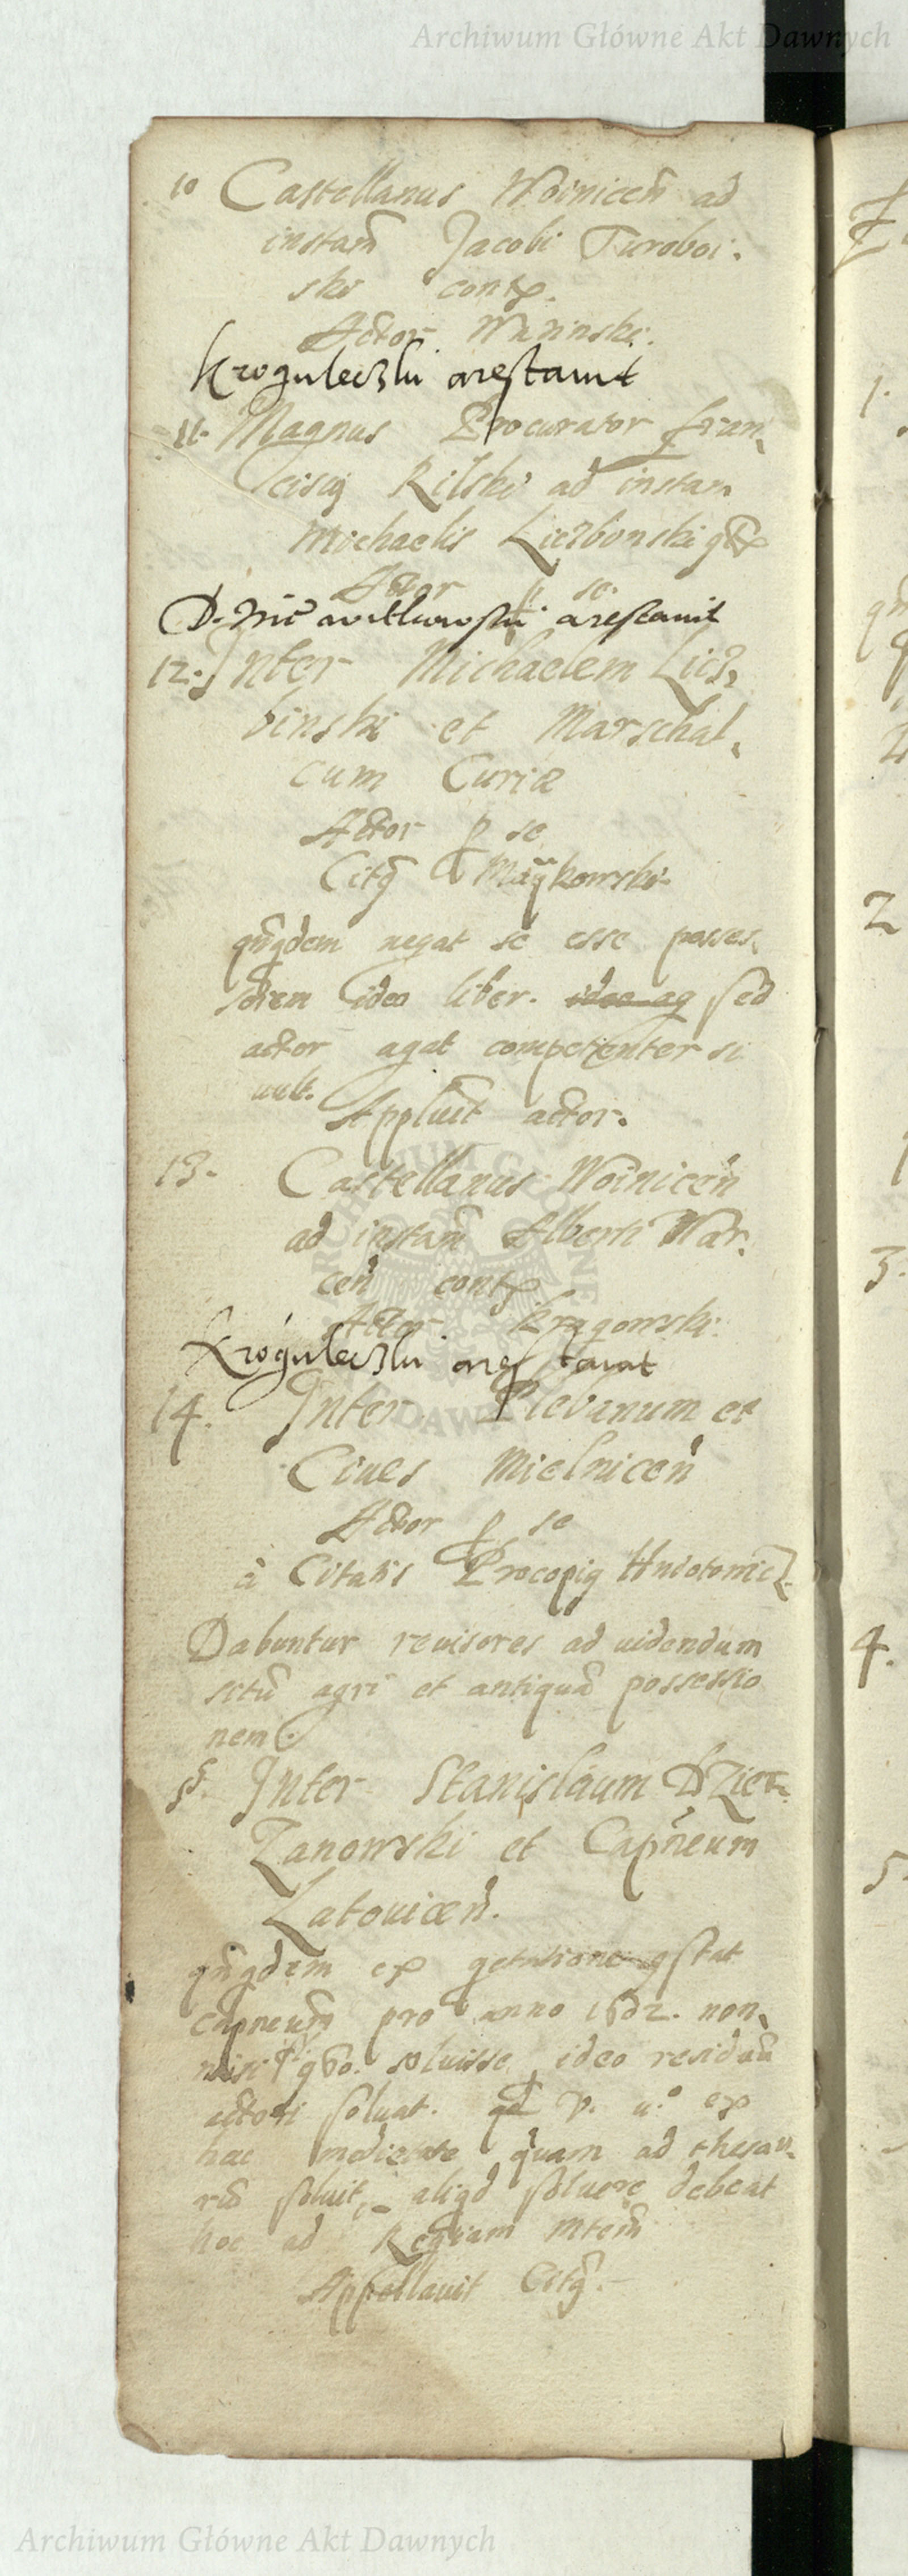 Archiwum Główne Akt Dawnych
10 Castellanus Woinicen̄ ad
instan̄ Jacobi Turoboi-
ski cont̃.
Actor Wminski.
Kroguleczki arestauit
11. Magnus Procurator fran,
cisci Rilski ad instan
Michaelis Liczbinski
Actor p se.
D. arestauit
12. Inter Michaelem Licz,
binski et Marschal,
cum Curiæ
Actor p se
Citq̃ Maÿkowski
qn̄qdem negat se esse posses,
sorem ideo liber. sed
actor agat competenter si
uult.
Appluit actor.
13. Castellanus Woinicen̄
ad instan̄ Alberti War,
cen̄ cont̃
Actor Kragowski.
Kroguleczki arestauit
14. Inter Plebanum et
Ciues Mielnicen̄
Actor p se
à Citatis Procopiq
Dabuntur reuisores ad uidendum
situ̅ agri et antiqua̅ possessio
nem.
Inter Stanislaum Dzier,
zanowski et Capneum
Latouicen̄.
qn̄qdem ex
capneum pro anno non,
nisi soluisse ideo residuu̅
actori soluat. ex
hac medietate quam ad thesau,
ru̅ soluit, aliqd soluere debeat
hoc ad Regiam Mtem̄
Appellauit Citq̃.
1.
2
3.
4.
5.
Archiwum Główne Akt Dawnych